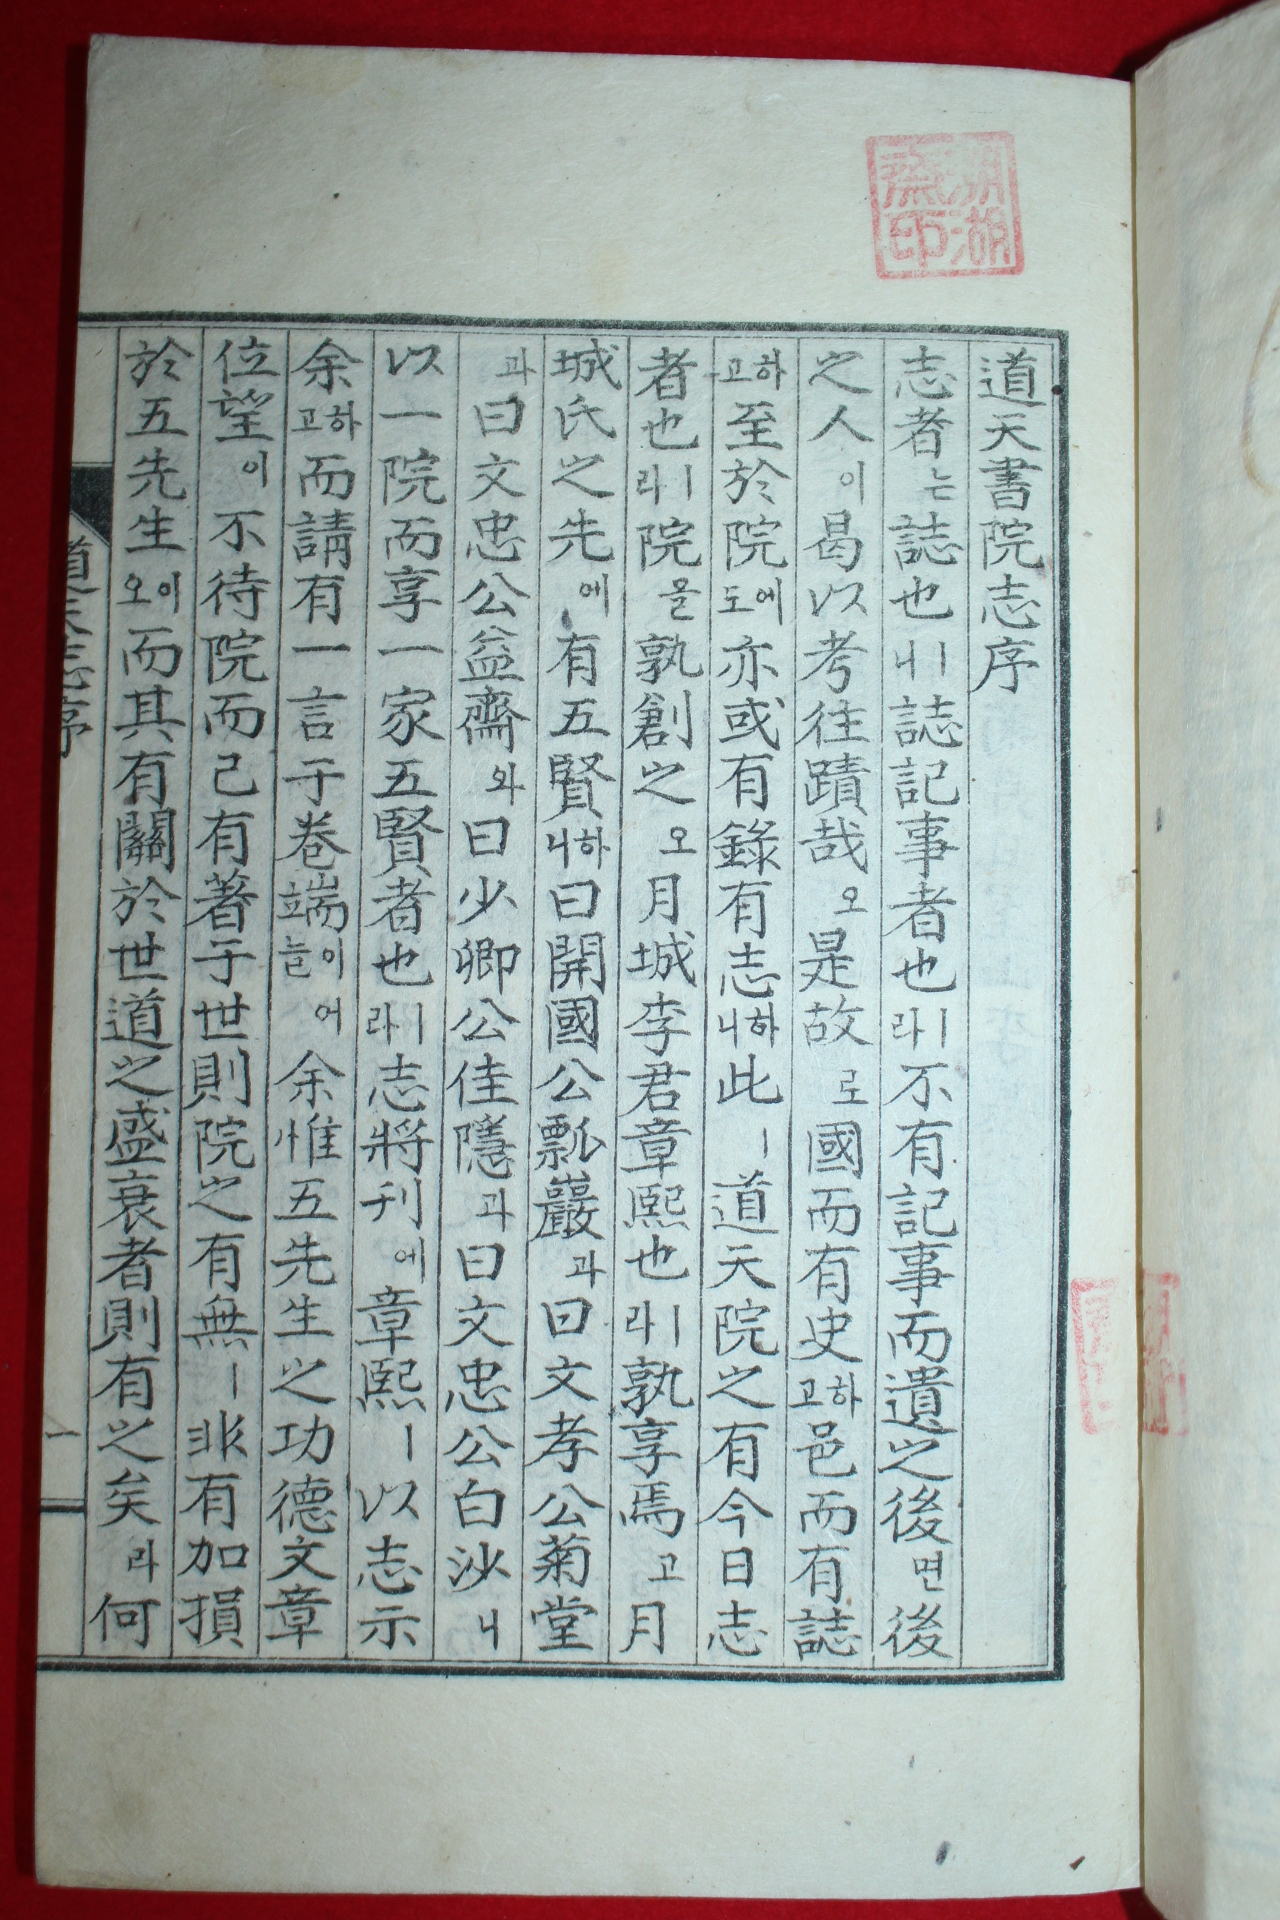 道天書院志序
志者는誌也ㅣ니誌記事者也ㅣ라不有記事而遺之後면後
之人이曷以考往蹟哉오是故로國而有史하고邑而有誌
하고至於院에도亦或有錄有志하니此ㅣ道天院之有今日志
者也ㅣ라院을孰創之오月城李君章熙也ㅣ라孰享焉고月
城氏之先에有五賢하니曰開國公瓢巖과曰文孝公菊堂
과曰文忠公益齋와曰少卿公佳隱과曰文忠公白沙니
以一院而享一家五賢者也ㅣ라志將刊에章熙ㅣ以志示
余하고而請有一言于卷端이어늘余惟五先生之功德文章
位望이不待院而已有著于世則院之有無ㅣ非有加損
於五先生이오而其有關於世道之盛衰者則有之矣라何
道天志序
一